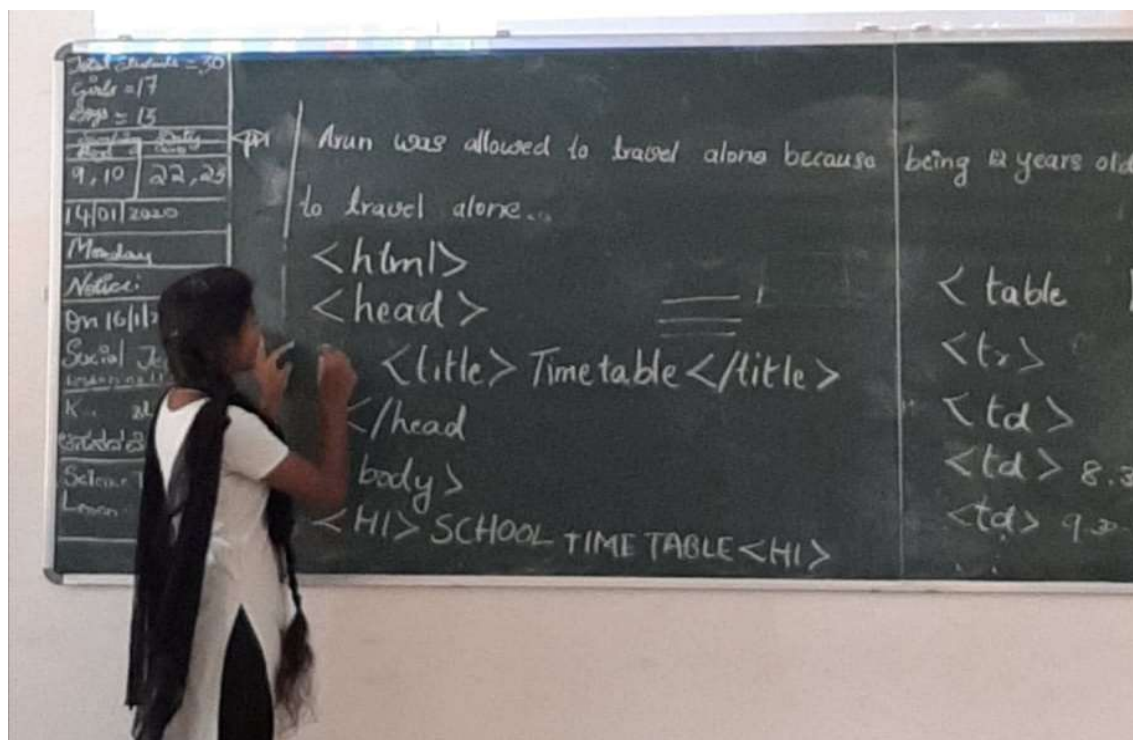 Total Students = 30
Girls = 17
Boys = 13
9, 10 22, 23
14/01/2020
Monday
Notice:
On 16/1/2
Social
K
Science
Lesson
Arun was allowed to travel alone because being 12 years old
to travel alone...
<html>
<head>
<title> Timetable </title>
</head
body>
<H1> SCHOOL TIME TABLE <H1>
< table
<tr>
<td>
<td> 8.3
<td> 9.30